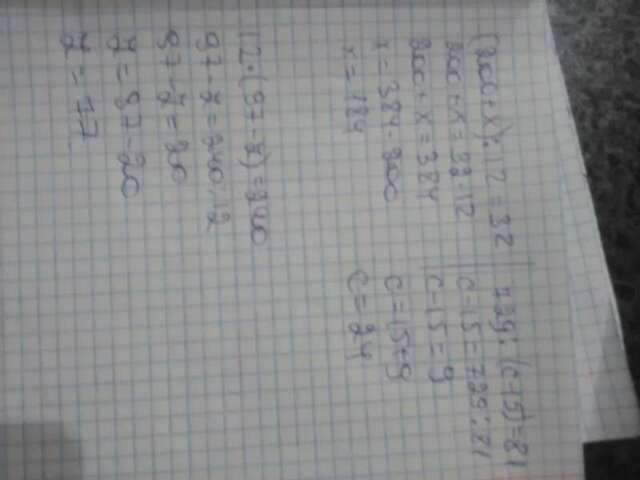 (200+x):12=32
200+x=32·12
200+x=384
x=384-200
x=184
729:(c-15)=81
c-15=729:81
c-15=9
c=15+9
c=24
12·(97-y)=240
97-y=240:12
97-y=20
y=97-20
y=77